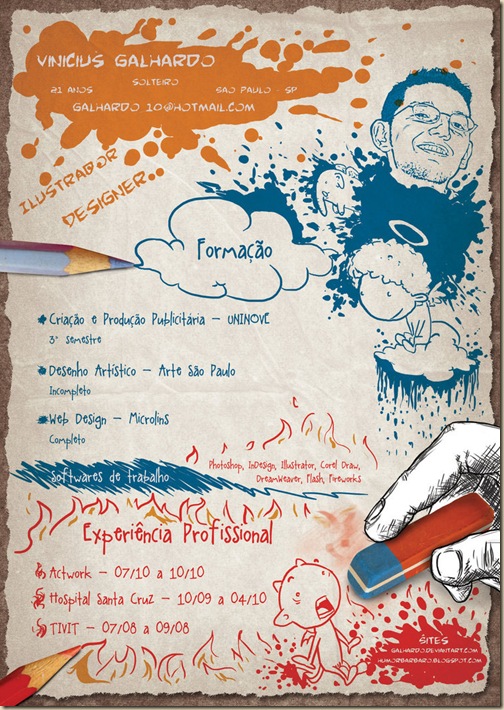 VINICIUS GALHARDO
SOLTEIRO
21 ANOS SAO PAULO - SP
GALHARDO_10@HOTMAIL.COM
ILUSTRADOR
DESIGNER..
Formação
Criação e Produção Publicitária - UNINOVE
3° semestre
Desenho Artístico - Arte São Paulo
Incompleto
Web Design - Microlins
Completo
Softwares de trabalho
Photoshop, InDesign, Illustrator, Corel Draw,
DreamWeaver, Flash, Fireworks
Experiência Profissional
Actwork - 07/10 a 10/10
Hospital Santa Cruz - 10/09 a 04/10
TIVIT - 07/08 a 09/08
SITES
GALHARDO.DEVIANTART.COM
HUMORBARBARO.BLOGSPOT.COM